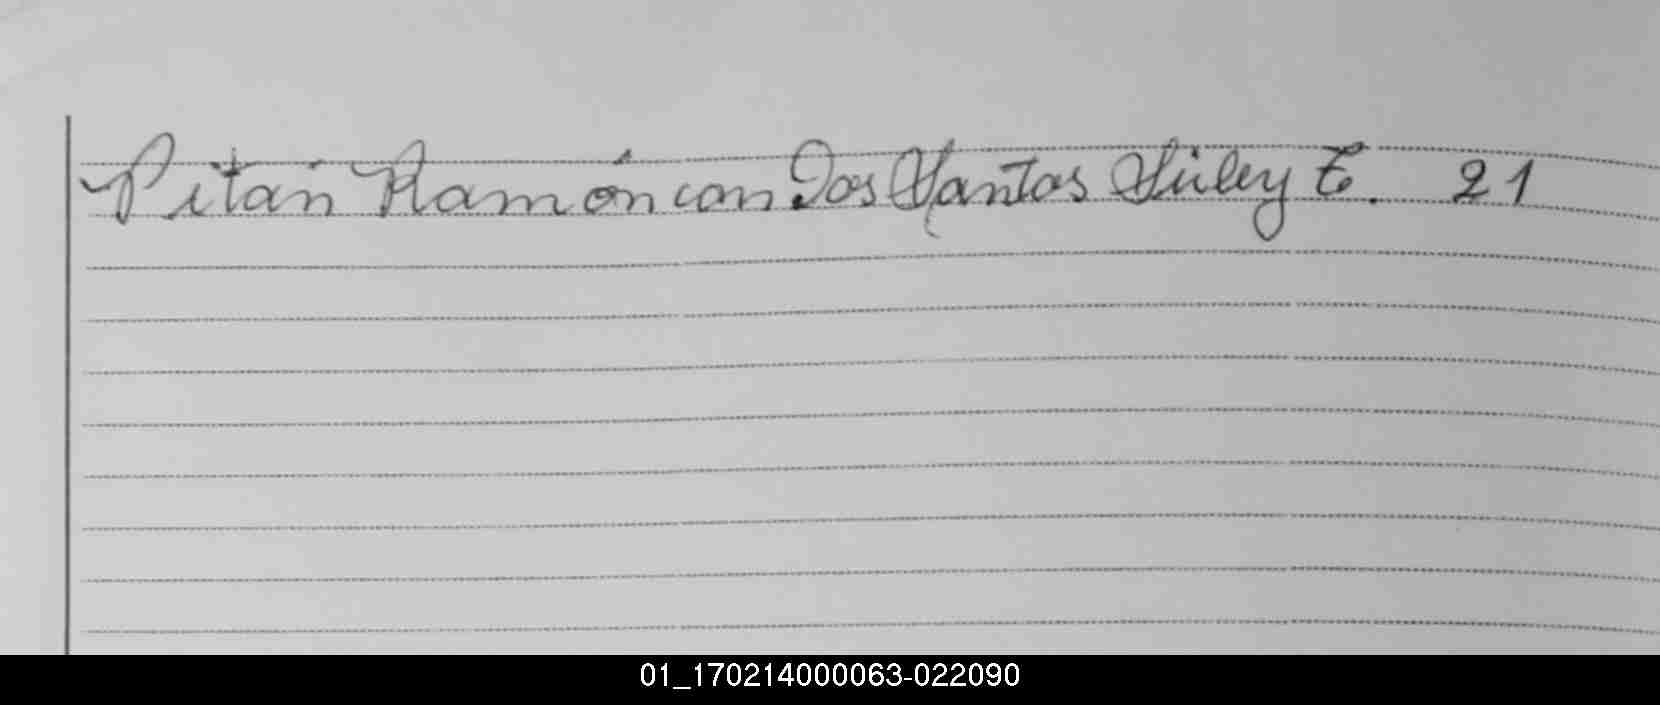 Pitan Ramón con Dos Santos Suley E. 21
01_170214000063-022090